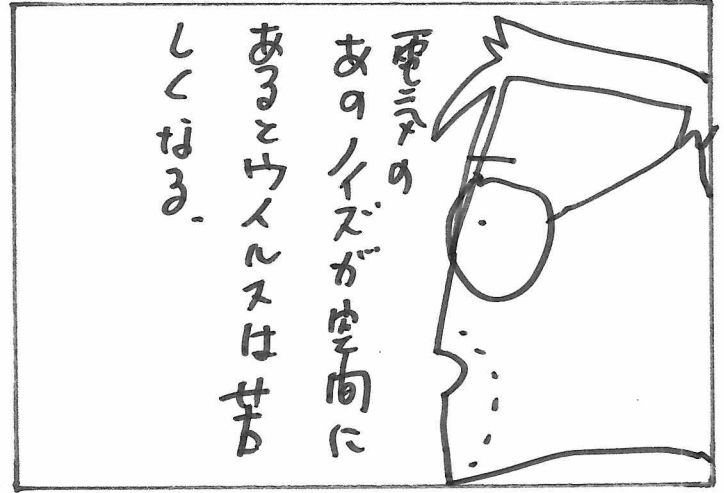 電気の
あのノイズが空間に
あるとウイルスは苦
しくなる.